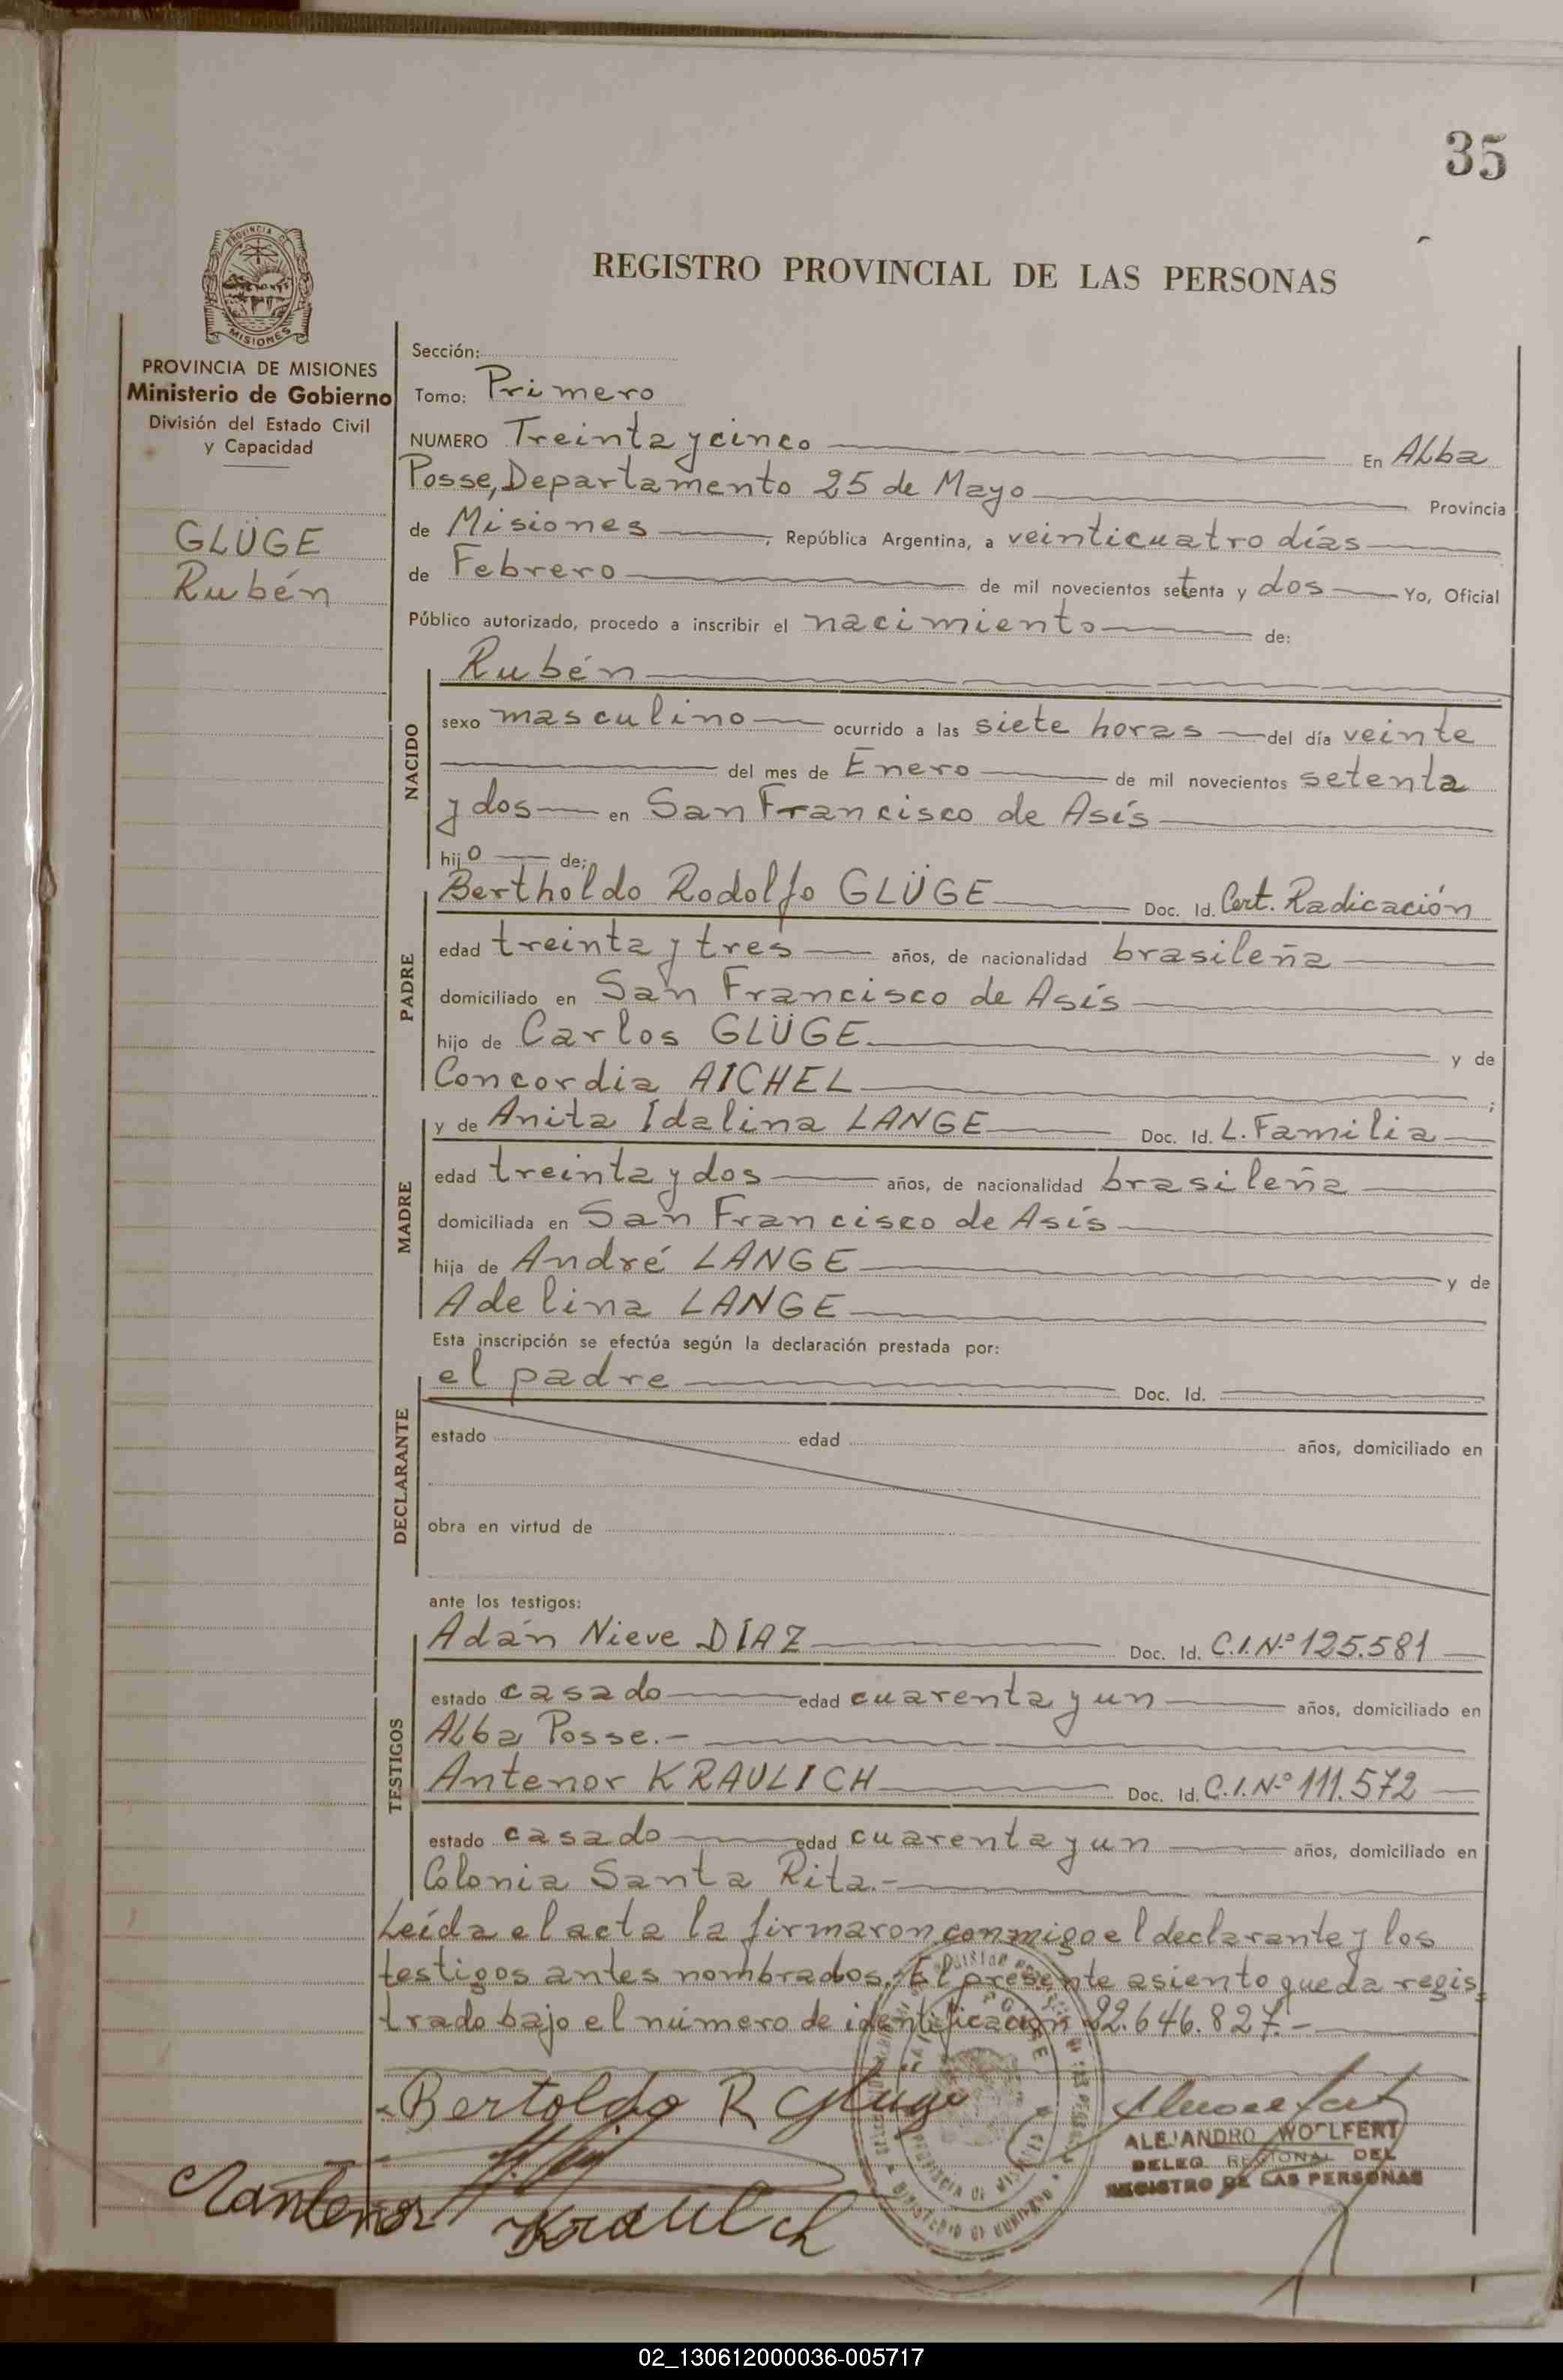 35
PROVINCIA DE
MISIONES
REGISTRO PROVINCIAL DE LAS PERSONAS
PROVINCIA DE MISIONES
Ministerio de Gobierno
División del Estado Civil
y Capacidad
GLÜGE
Rubén
Sección:
Tomo: Primero
NUMERO Treinta y cinco En Alba
Posse, Departamento 25 de Mayo Provincia
de Misiones, República Argentina, a veinticuatro días
de Febrero de mil novecientos setenta y dos Yo, Oficial
Público autorizado, procedo a inscribir el nacimiento de:
NACIDO
Rubén
sexo masculino ocurrido a las siete horas del día veinte
del mes de Enero de mil novecientos setenta
y dos en San Francisco de Asís
hijo de:
PADRE
Bertholdo Rodolfo GLÜGE Doc. Id. Cert. Radicación
edad treinta y tres años, de nacionalidad brasileña
domiciliado en San Francisco de Asís
hijo de Carlos GLÜGE y de
Concordia AICHEL ;
MADRE
y de Anita Idalina LANGE Doc. Id. L. Familia
edad treinta y dos años, de nacionalidad brasileña
domiciliada en San Francisco de Asís
hija de André LANGE y de
Adelina LANGE
Esta inscripción se efectúa según la declaración prestada por:
DECLARANTE
el padre Doc. Id.
estado edad años, domiciliado en
obra en virtud de
ante los testigos:
TESTIGOS
Adán Nieve DÍAZ Doc. Id. C.I.Nº 125.581
estado casado edad cuarenta y un años, domiciliado en
Alba Posse.-
Antenor KRAULICH Doc. Id. C.I.Nº 111.572
estado casado edad cuarenta y un años, domiciliado en
Colonia Santa Rita.-
Leída el acta la firmaron conmigo el declarante y los
testigos antes nombrados. El presente asiento queda regis
trado bajo el número de identificación 22.646.827.-
Bertoldo R Glüge
Antenor Kraulich
ALEJANDRO WOLFERT
DELEG. REGIONAL DEL
REGISTRO DE LAS PERSONAS
02_130612000036-005717